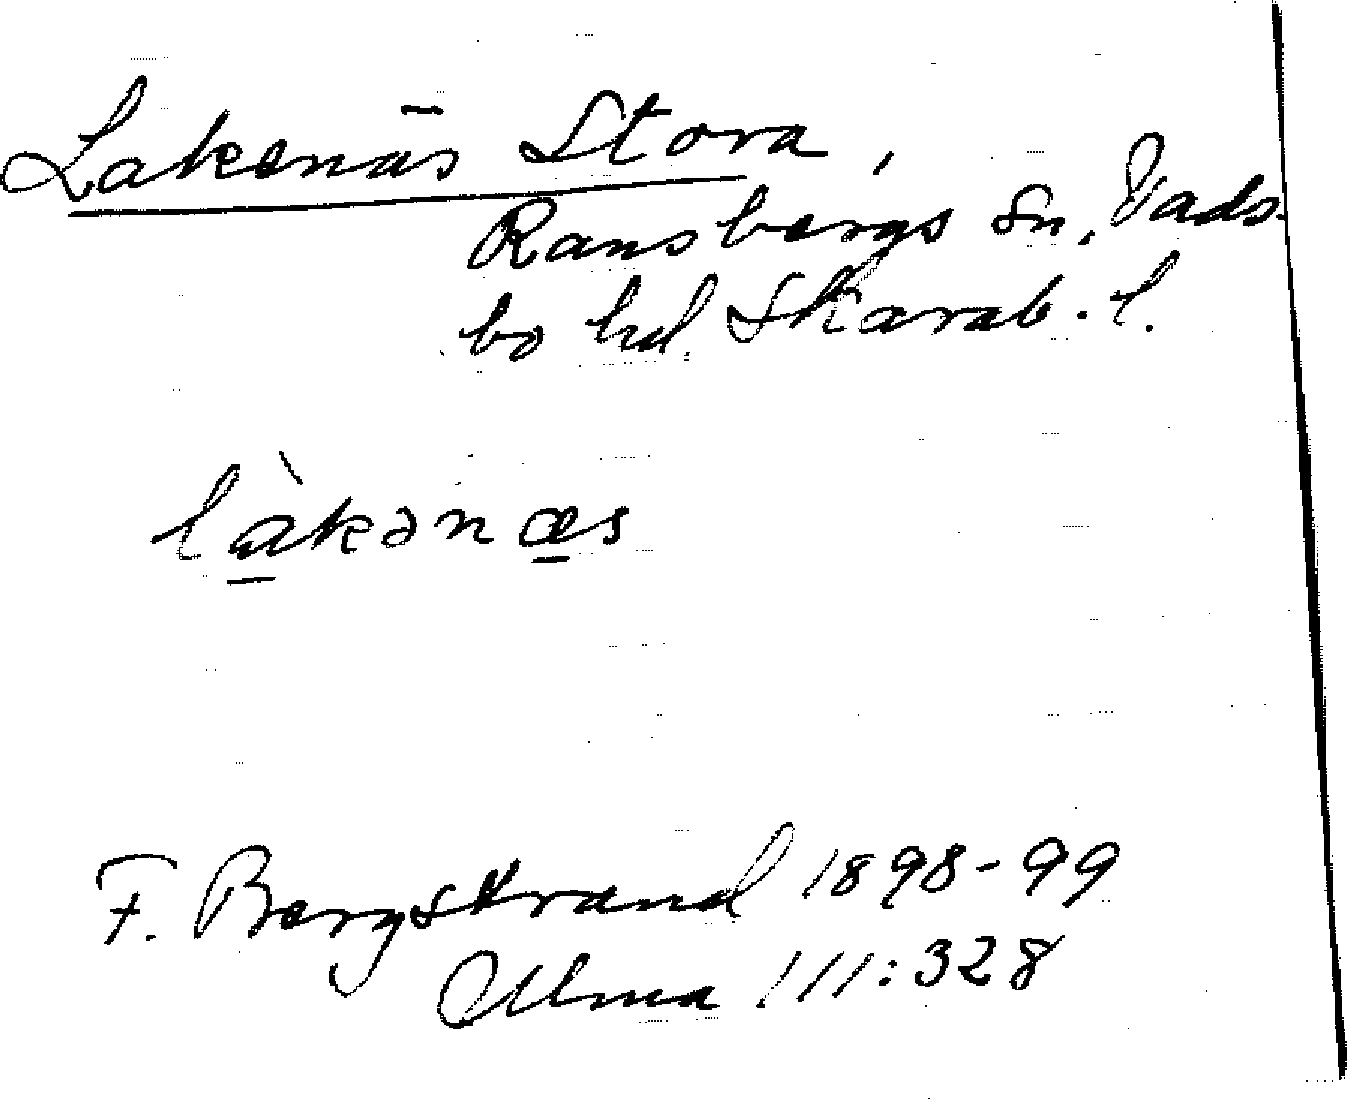 Lakenäs Stora,
Ransbergs Sn, Vads-
bo hd. Skarab. l.
là̱kənæ̱s
F. Bergstrand 1898-99
Ulma 111:328